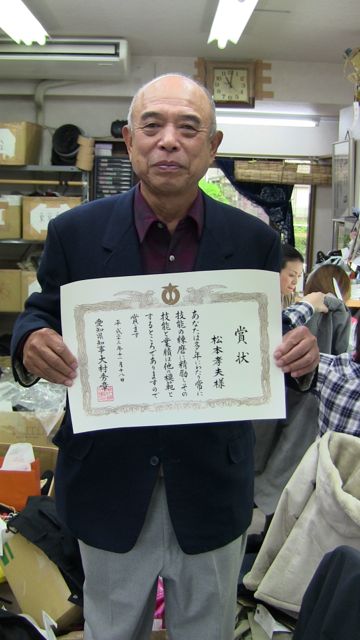 賞状
松本孝夫様
あなたは多年にわたり常に
技能の練磨に精励しその
技能と業績は他の模範と
するところでありますので
賞します
平成二十三年十一月十八日
愛知県知事大村秀章